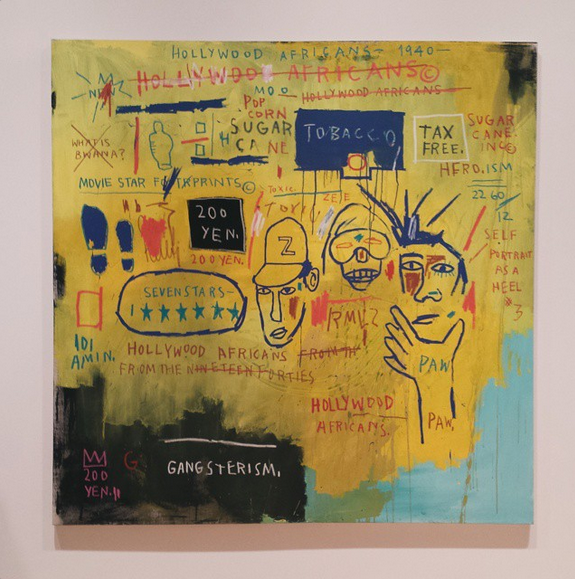 HOLLYWOOD AFRICANS- 1940-
HOLLYWOOD AFRICANS©
HOLLYWOOD AFRICANS
POP
CORN
SUGAR
CANE
TOBACCO
TAX
FREE.
SUGAR
CANE.
INC©
HERO.ISM
WHAT IS
BWANA?
MOVIE STAR FOOTPRINTS©
TOXIC
2260
12
200
YEN.
200 YEN.
Z
SELF
PORTRAIT
AS A
HEEL
#3
SEVEN STARS-
1
RMLZ
IDI
AMIN.
HOLLYWOOD AFRICANS FROM TH
FROM THE NINETEEN FORTIES
PAW
HOLLYWOOD
AFRICANS.
PAW.
G
GANGSTERISM.
200
YEN.